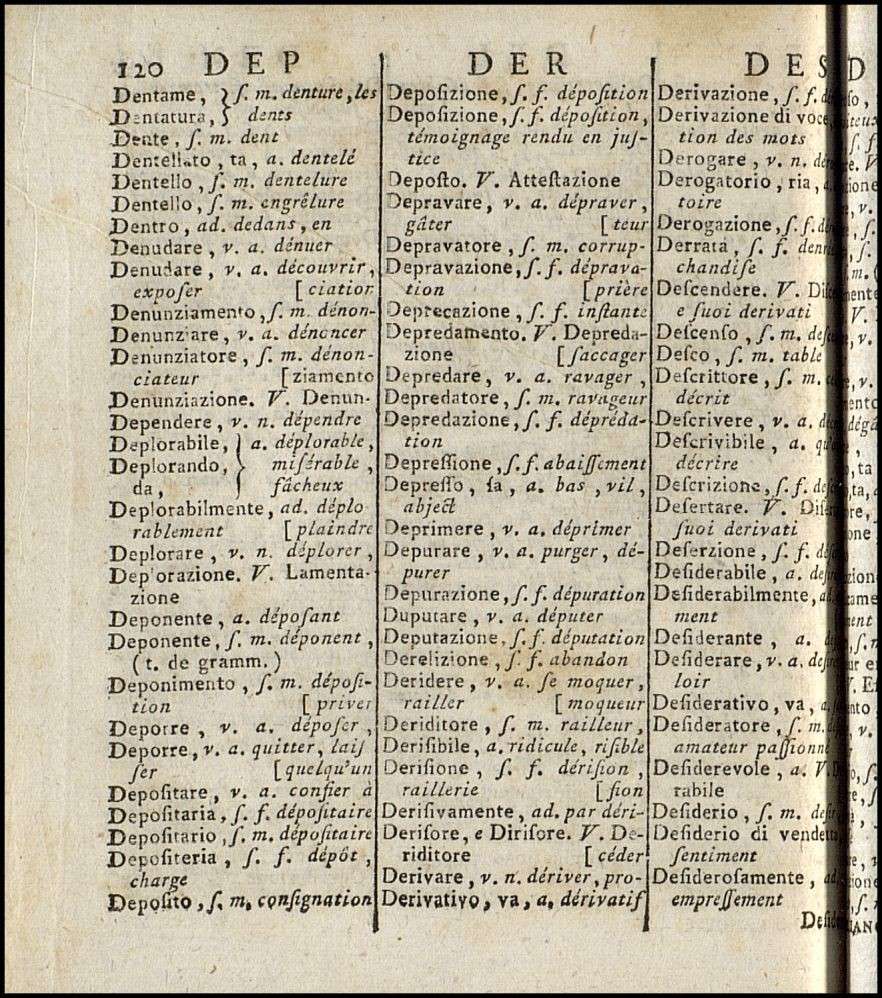 120 DEP
Dentame, } ſ. m. denture, les
Dentatura, } dents
Dente, ſ. m. dent
Dentellato, ta, a. dentelé
Dentello, ſ. m. dentelure
Dentello, ſ. m. engrêlure
Dentro, ad. dedans, en
Denudare, v. a. dénuer
Denudare, v. a. découvrir,
expoſer [ciation
Denunziamento, ſ. m. dénon-
Denunziare, v. a. dénoncer
Denunziatore, ſ. m. dénon-
ciateur [ziamento
Denunziazione. V. Denun-
Dependere, v. n. dépendre
Deplorabile, } a. déplorable,
Deplorando, } miſérable,
da, } fâcheux
Deplorabilmente, ad. déplo
rablement [plaindre
Deplorare, v. n. déplorer,
Deplorazione. V. Lamenta-
zione
Deponente, a. dépoſant
Deponente, ſ. m. déponent,
(t. de gramm.)
Deponimento, ſ. m. dépoſi-
tion [priver
Deporre, v. a. dépoſer,
Deporre, v. a. quitter, laiſ
ſer [quelqu'un
Depoſitare, v. a. confier à
Depoſitaria, ſ. f. dépoſitaire
Depoſitario, ſ. m. dépoſitaire
Depoſiteria, ſ. f. dépôt,
charge
Depoſito, ſ. m. conſignation
DER
Depoſizione, ſ. f. dépoſition
Depoſizione, ſ. f. dépoſition,
témoignage rendu en juſ-
tice
Depoſto. V. Atteſtazione
Depravare, v. a. dépraver,
gâter [teur
Depravatore, ſ. m. corrup-
Depravazione, ſ. f. déprava-
tion [prière
Deprecazione, ſ. f. inſtante
Depredamento. V. Depreda-
zione [ſaccager
Depredare, v. a. ravager,
Depredatore, ſ. m. ravageur
Depredazione, ſ. f. dépréda-
tion
Depreſſione, ſ. f. abaiſſement
Depreſſo, ſa, a. bas, vil,
abject
Deprimere, v. a. déprimer
Depurare, v. a. purger, dé-
purer
Depurazione, ſ. f. dépuration
Duputare, v. a. députer
Deputazione, ſ. f. députation
Derelizione, ſ. f. abandon
Deridere, v. a. ſe moquer,
railler [moqueur
Deriditore, ſ. m. railleur,
Deriſibile, a. ridicule, riſible
Deriſione, ſ. f. dériſion,
raillerie [ſion
Deriſivamente, ad. par déri-
Deriſore, e Diriſore. V. De-
riditore [céder
Derivare, v. n. dériver, pro-
Derivativo, va, a. dérivatif
DES
Derivazione, ſ. f.
Derivazione di voce
tion des mots
Derogare, v. n.
Derogatorio, ria,
toire
Derogazione, ſ. f.
Derrata, ſ. f.
chandiſe
Deſcendere. V.
e ſuoi derivati
Deſcenſo, ſ. m.
Deſco, ſ. m. table
Deſcrittore, ſ. m.
décrit
Deſcrivere, v. a.
Deſcrivibile, a.
décrire
Deſcrizione, ſ. f.
Deſertare. V.
ſuoi derivati
Deſerzione, ſ. f.
Deſiderabile, a.
Deſiderabilmente,
ment
Deſiderante, a.
Deſiderare, v. a.
loir
Deſiderativo, va,
Deſideratore, ſ. m.
amateur paſſionné
Deſiderevole, a. V.
rabile
Deſiderio, ſ. m.
Deſiderio di vendetta
ſentiment
Deſideroſamente,
empreſſement